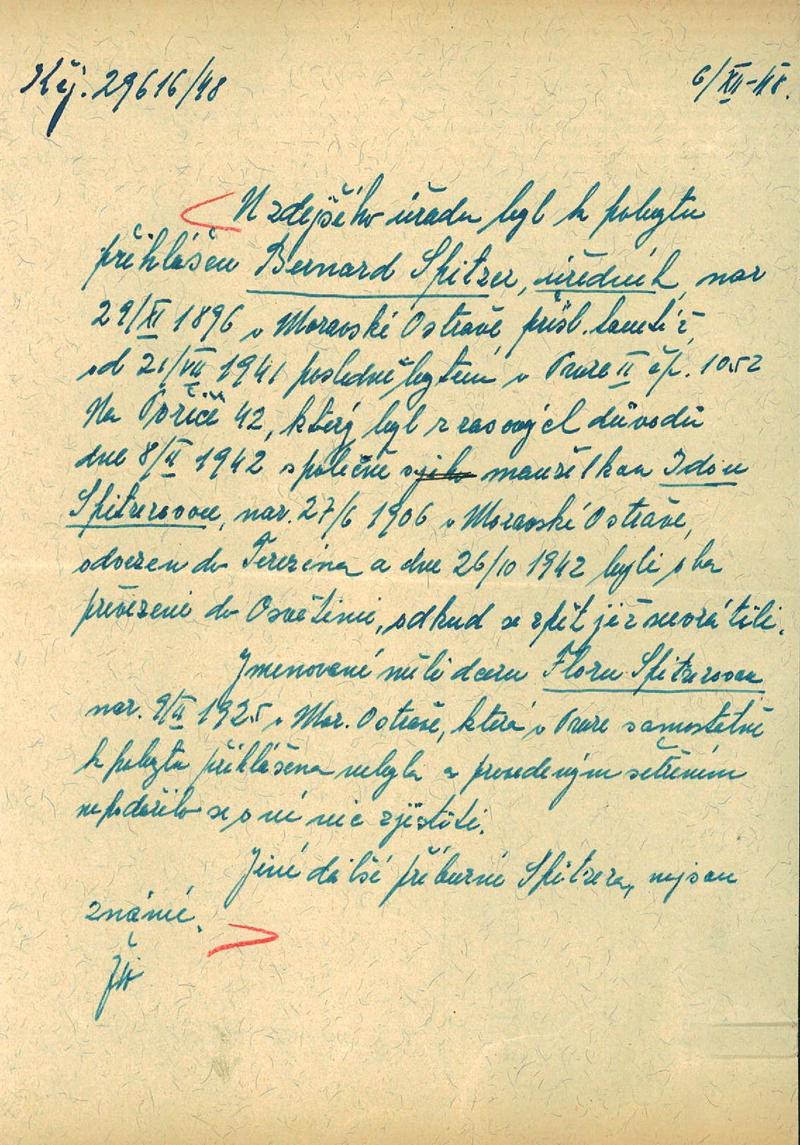 Kčj. 29616/48
6/XII-48.
U zdejšího úřadu byl k pobytu
přihlášen Bernard Spitzer, úředník, nar
29/XI 1896 v Moravské Ostravě přísl. tamtéž,
od 21/VII 1941 posledně bytem v Praze II čp. 1052
Na Poříčí 42, který byl z rasových důvodů
dne 8/II 1942 společně s manželkou Idou
Spitzerovou, nar. 27/6 1906 v Moravské Ostravě,
odvezen do Terezína a dne 26/10 1942 byli oba
převezeni do Osvětimi, odkud se zpět již nevrátili.
Jmenovaní měli dceru Floru Spitzerovou
nar. 9/II 1925 v Mor. Ostravě, která v Praze samostatně
k pobytu přihlášena nebyla a provedeným šetřením
nepodařilo se o ní nic zjistiti.
Jiní další příbuzní Spitzera, nejsou
známi.